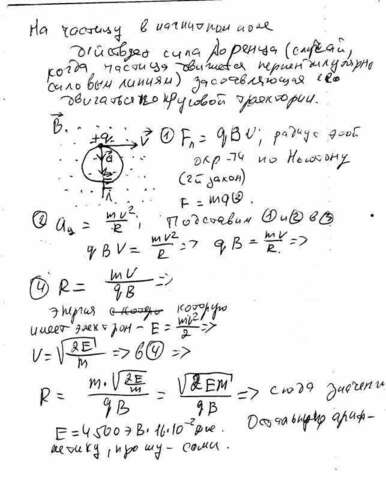 На частицу в магнитном поле
действует сила Лоренца (случай,
когда частица движется перпендикулярно
силовым линиям) заставляющая её
двигаться по круговой траектории.
B⃗. +q V⃗ ① Fл = qBV; радиус этой
окр-ти по Ньютону
(2й закон)
Fл
F = ma③.
② aц = mv²/R; Подставим ① и ② в ③
qBV = mv²/R => qB = mv/R =>
④ R = mv/qB =>
Энергия которую
имеет электрон - E = mv²/2 =>
V = √(2E/m) => в ④ =>
R = m·√(2E/m)/qB = √(2Em)/qB => сюда значени
E = 4500 эВ·1,6·10⁻² Дж. Остальную ариф-
метику, прошу - сами.